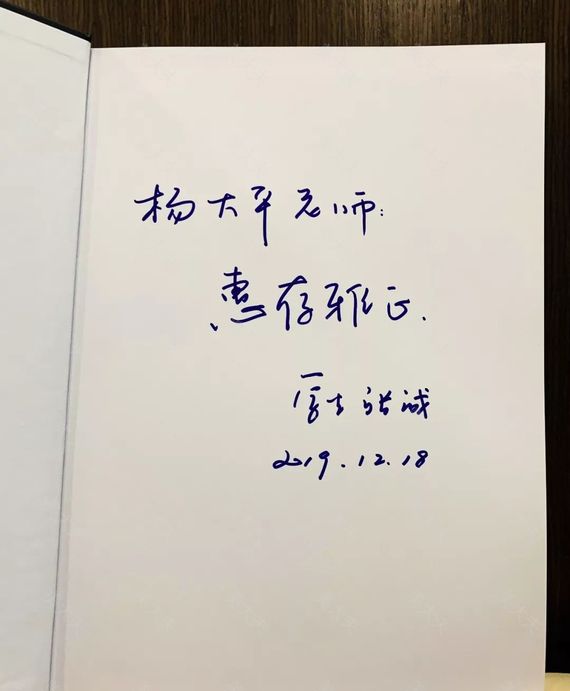 杨大平老师:
惠存雅正.
张诚
2019.12.18